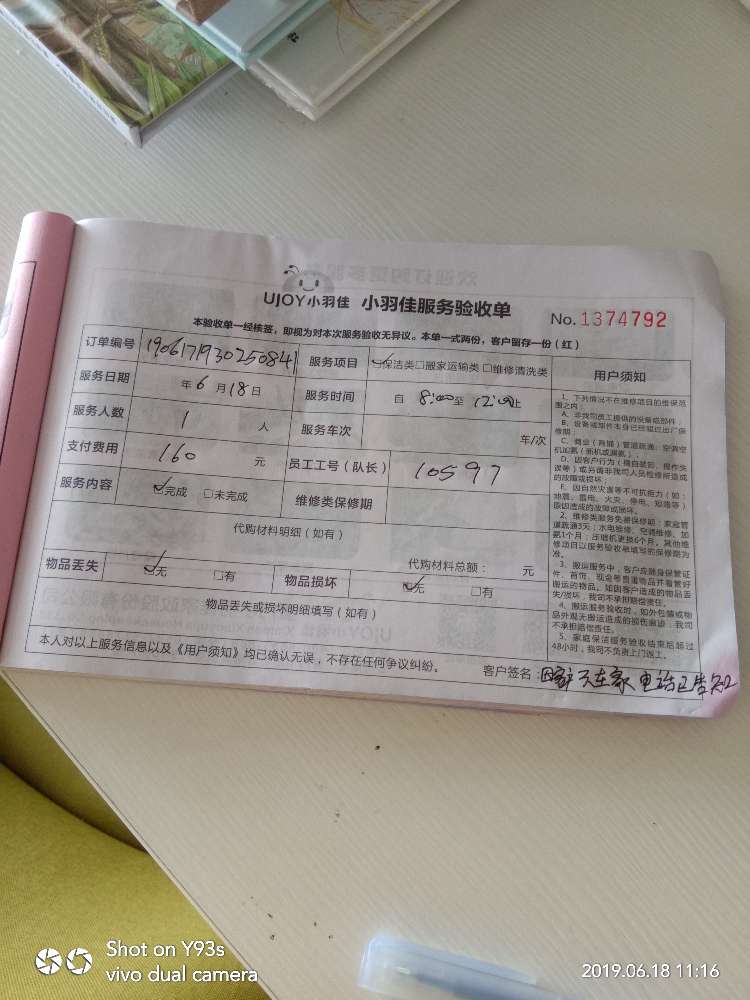 UJOY小羽佳 小羽佳服务验收单
No.1374792
本验收单一经核签，即视为对本次服务验收无异议。本单一式两份，客户留存一份（红）
订单编号 190617193025084 服务项目 保洁类 搬家运输类 维修清洗类 用户须知
服务日期 年6月18日 服务时间 自 8:00至 12:00止
服务人数 1 人 服务车次 年/次
支付费用 160 元 员工工号（队长） 10597
服务内容 完成 未完成 维修类保修期
代购材料明细（如有）
代购材料总额： 元
物品丢失 无 有 物品损坏 无 有
物品丢失或损坏明细填写（如有）
1、下列情况不在维修项目的维保范围之内：
A、非我司员工提供的设备或部件；
B、设备或部件本身已经超过出厂保修期；
C、商业（商铺）管道疏通、空调空机加氨（商机或漏氨）；
D、因客户行为（擅自装卸、操作失误等）或另请非我司人员检修所造成的故障或损坏；
E、因自然灾害等不可抗拒力（如：地震、雷电、火灾、停电、短路等）原因造成的故障或损坏。
2、维修类服务免费保修期：家庭管道疏通3天；水电维修、空调维修、加氨1个月；压缩机更换6个月，其他维修项目以服务验收单填写的保修期为准。
3、搬运服务中，客户应随身保管证件、首饰、现金等贵重物品并看管好搬运的物品。如因客户造成的物品丢失/损坏，我司不承担赔偿责任。
4、搬运服务验收时，如外包装或物品外观无搬运造成的损伤痕迹，我司不承担赔偿责任。
5、家庭保洁服务验收结束后超过48小时，我司不负责上门返工。
本人对以上服务信息以及《用户须知》均已确认无误，不存在任何争议纠纷。
客户签名：因客户不在家电话已告知
Shot on Y93s
vivo dual camera
2019.06.18 11:16